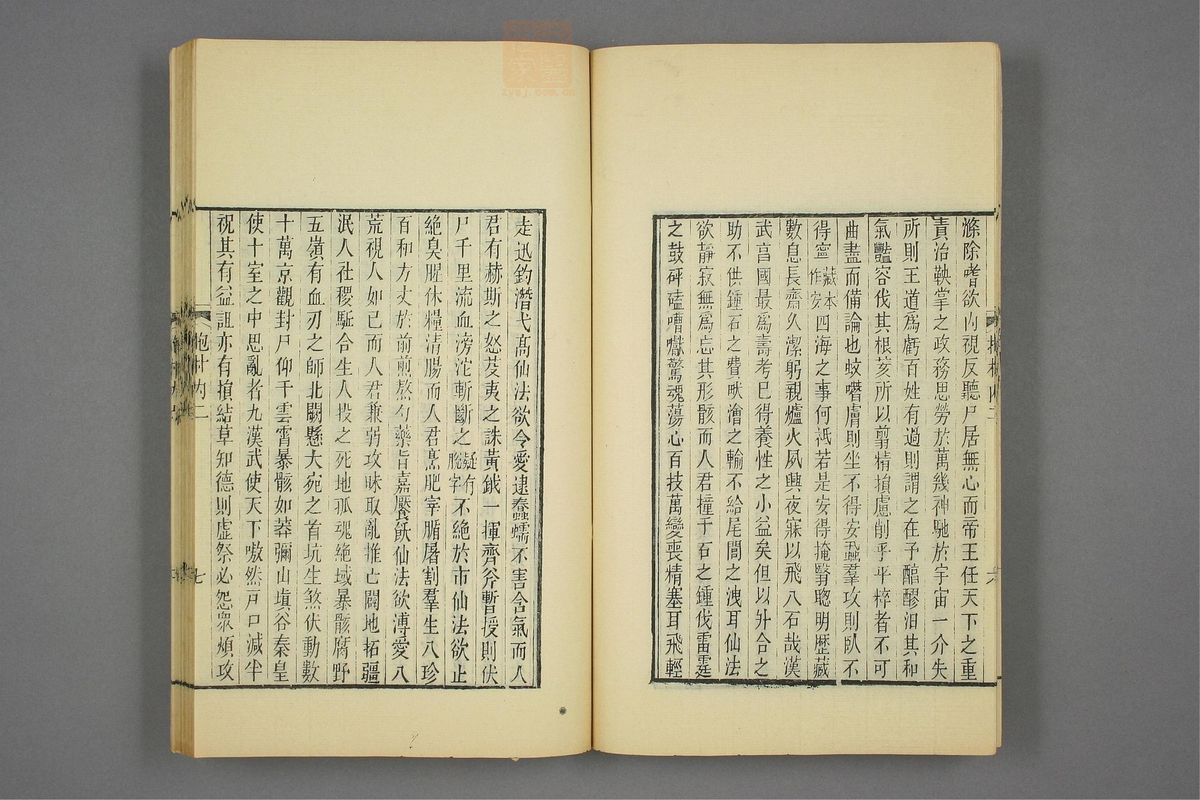 滌除嗜欲內視反聽尸居無心而帝王任天下之重
責治鞅掌之政務思勞於萬幾神馳於宇宙一介失
所則王道爲虧百姓有過則謂之在予醕醪汨其和
氣豔容伐其根荄所以翦精損慮削乎平粹者不可
曲盡而備論也蚊噆膚則坐不得安蝨羣攻則臥不
得寧藏本作安四海之事何祗若是安得掩翳聰明歷藏
數息長齋久潔躬親爐火夙興夜寐以飛八石哉漢
武享國最爲壽考已得養性之小益矣但以升合之
助不供鍾石之費畎澮之輸不給尾閭之洩耳仙法
欲靜寂無爲忘其形骸而人君撞千石之鍾伐雷霆
之鼓砰磕嘈囐驚魂蕩心百技萬變喪精塞耳飛輕
走迅釣潛弋高仙法欲令愛逮蠢蠕不害含氣而人
君有赫斯之怒芟夷之誅黃鉞一揮齊斧暫授則伏
尸千里流血滂沱斬斷之疑有脫字不絕於市仙法欲止
絕臭腥休糧清腸而人君烹肥宰腯屠割羣生八珍
百和方丈於前煎熬勺藥旨嘉饜飫仙法欲溥愛八
荒視人如己而人君兼弱攻昧取亂推亡闢地拓疆
泯人社稷駈合生人投之死地孤魂絕域暴骸腐野
五嶺有血刃之師北闕懸大宛之首坑生煞伏動數
十萬京觀封尸仰干雲霄暴骸如莽彌山塡谷秦皇
使十室之中思亂者九漢武使天下嗷然戸口減半
祝其有益詛亦有損結草知德則虛祭必怨衆煩攻
抱朴內二
七